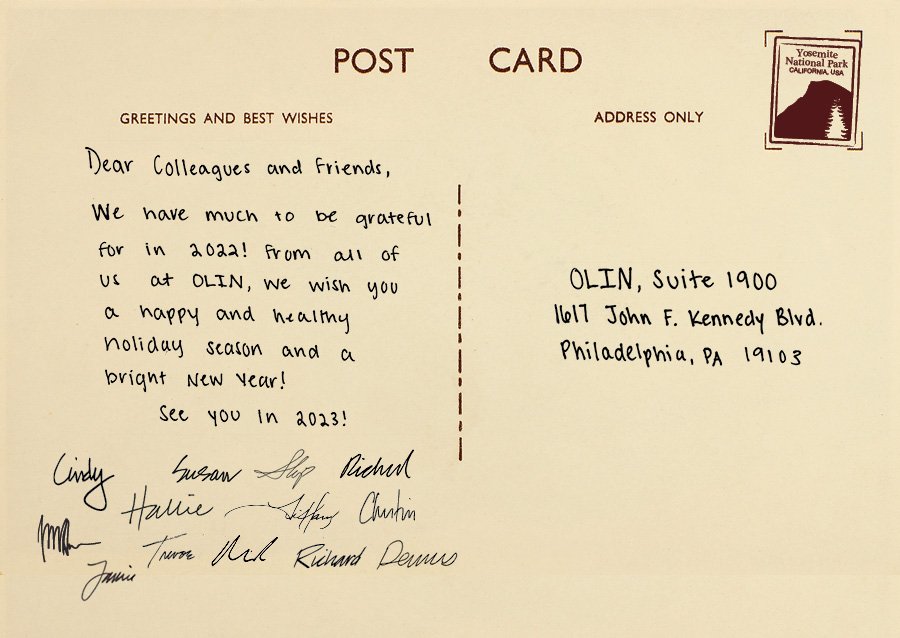 POST CARD
Yosemite
National Park
CALIFORNIA, USA
GREETINGS AND BEST WISHES
ADDRESS ONLY
Dear Colleagues and Friends,
We have much to be grateful
for in 2022! From all of
us at OLIN, we wish you
a happy and healthy
holiday season and a
bright New Year!
See you in 2023!
OLIN, Suite 1900
1617 John F. Kennedy Blvd.
Philadelphia, PA 19103
Cindy Susan Skip Richard
Hallie Tiffany Christin
Trevor Richard Dennis
Jamie